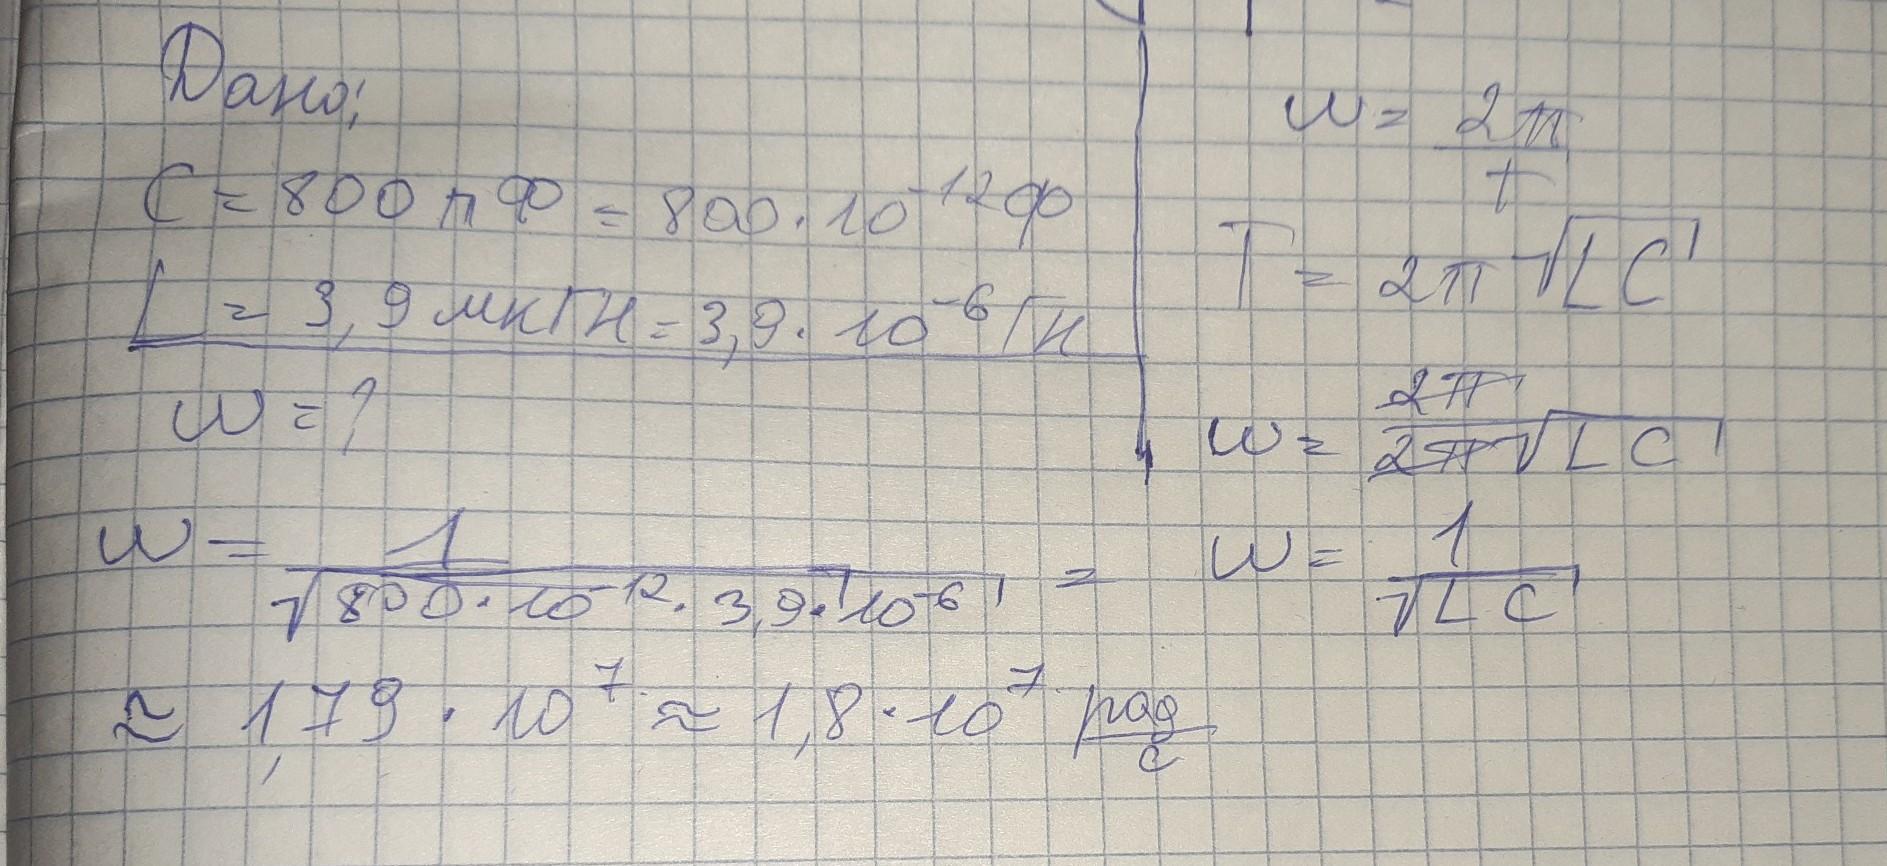 Дано;
C = 800 пФ = 800 · 10⁻¹² Ф
L = 3,9 мкГн = 3,9 · 10⁻⁶ Гн
ω = ?
ω = 2π / t
T = 2π √LC
ω = 2π / 2π√LC
ω = 1 / √LC
ω = 1 / √800 · 10⁻¹² · 3,9 · 10⁻⁶ =
≈ 1,79 · 10⁷ ≈ 1,8 · 10⁷ рад/с